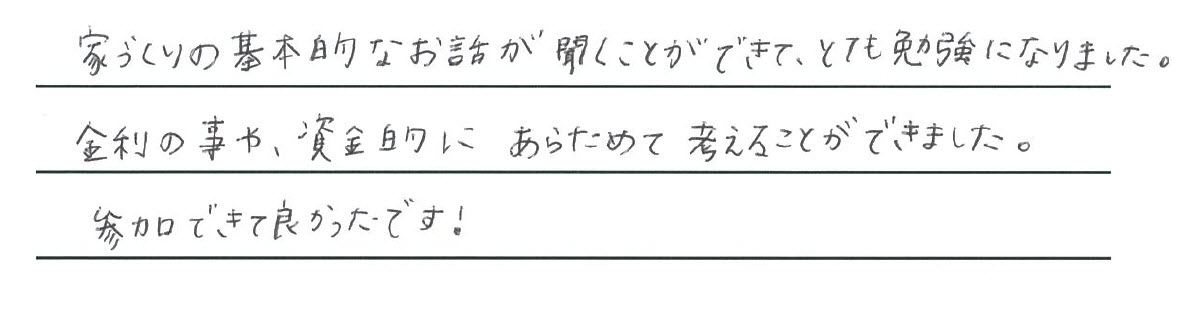 家づくりの基本的なお話が聞くことができて、とても勉強になりました。
金利の事や、資金的に あらためて 考えることができました。
参加できて良かったです!